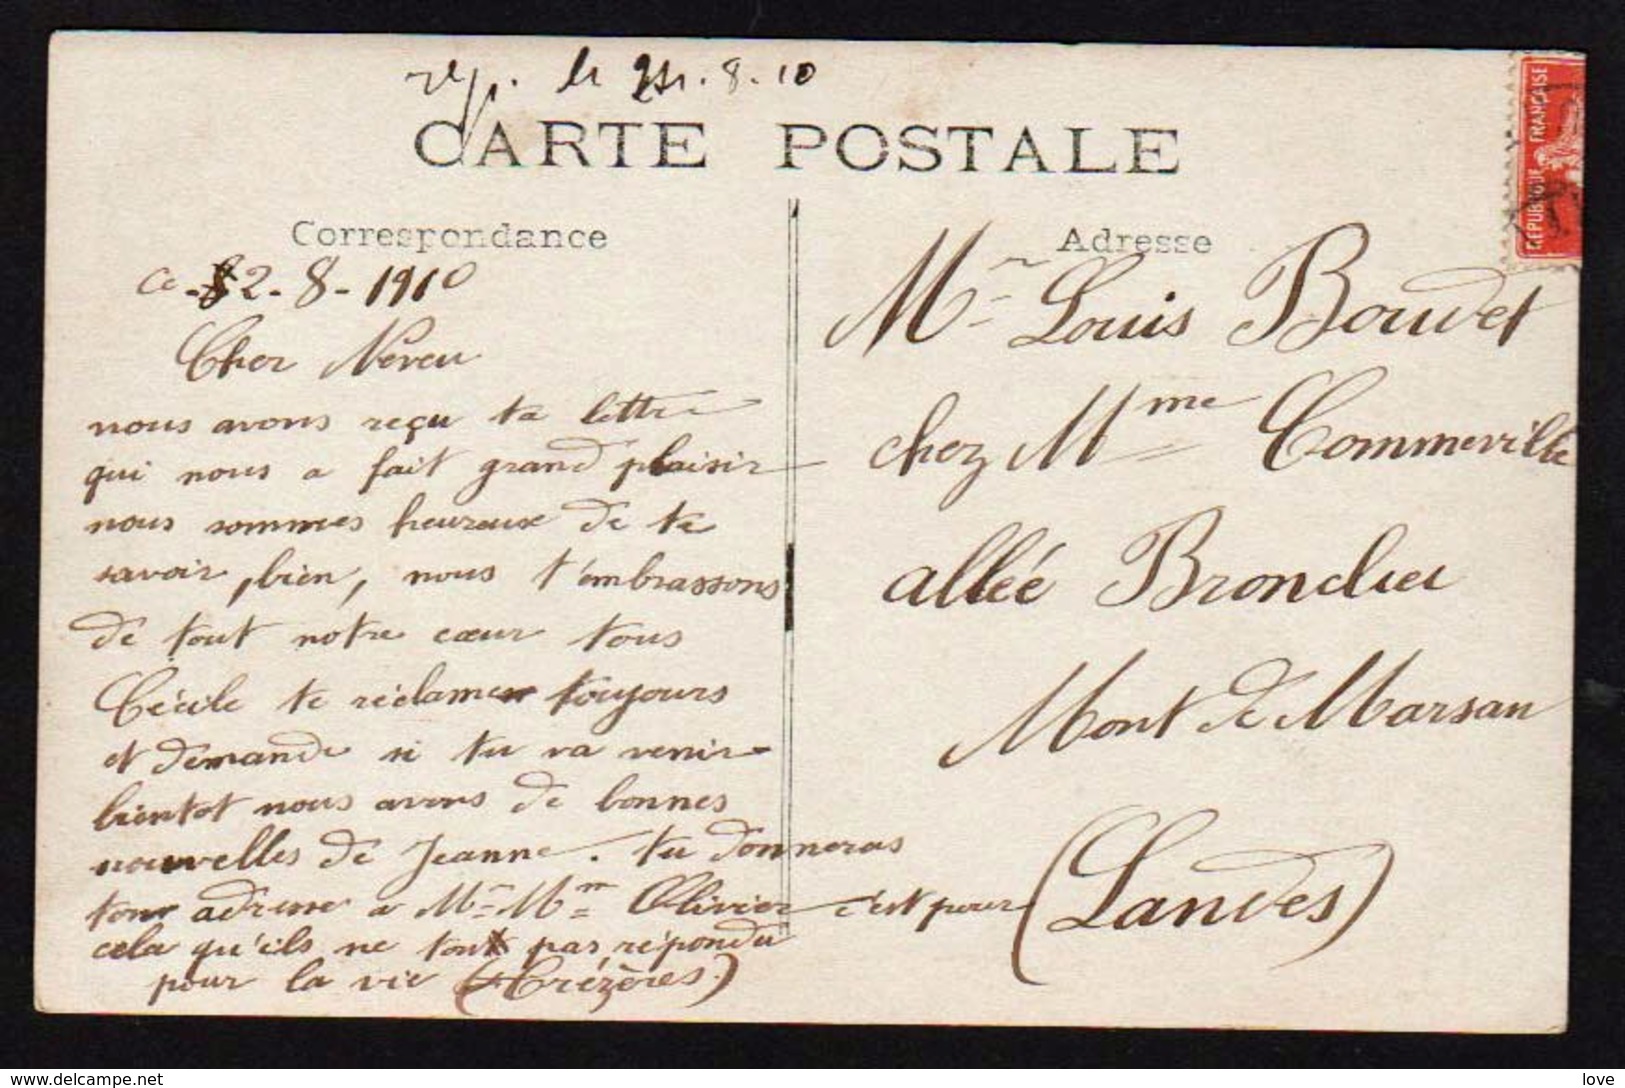 rép. le 21.8.10
CARTE POSTALE
Correspondance
Adresse
RÉPUBLIQUE FRANÇAISE
ce 2-8-1910
Cher Neveu
nous avons reçu ta lettre
qui nous a fait grand plaisir
nous sommes heureux de te
savoir, bien, nous t'embrassons
de tout notre cœur tous
Cécile te réclame toujours
et demande si tu va venir
bientot nous avons de bonnes
nouvelles de Jeanne. tu donneras
ton adresse a Mr Mme Ollivier c'est pour
cela qu'ils ne tont pas répondu
pour la vie (Trézères)
Mr Louis Bouvet
chez Mme Commeville
allée
Mont de Marsan
(Landes)
love
www.delcampe.net